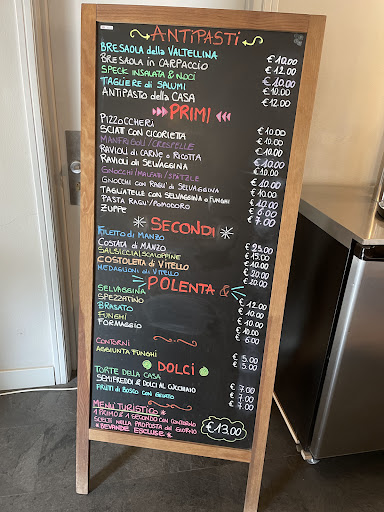 ANTIPASTI
BRESAOLA della VALTELLINA € 10.00
BRESAOLA in CARPACCIO € 12.00
SPECK INSALATA & NOCI € 10.00
TAGLIERE di SALUMI € 10.00
ANTIPASTO della CASA € 12.00
PRIMI
PIZZOCCHERI € 10.00
SCIAT CON CICORIETTA € 10.00
MANFRIGOLI/CRESPELLE € 10.00
RAVIOLI di CARNE o RICOTTA € 10.00
RAVIOLI di SELVAGGINA € 10.00
GNOCCHI/MALFATTI/SPÄTZLE € 10.00
GNOCCHI CON RAGU' di SELVAGGINA € 10.00
TAGLIATELLE CON SELVAGGINA o FUNGHI € 10.00
PASTA RAGU'/POMODORO € 6.00
ZUPPE € 7.00
SECONDI
FILETTO di MANZO € 25.00
COSTATA di MANZO € 15.00
SALSICCIA/SCALOPPINE € 10.00
COSTOLETTA di VITELLO € 20.00
MEDAGLIONI di VITELLO € 20.00
POLENTA &
SELVAGGINA € 12.00
SPEZZATINO € 10.00
BRASATO € 10.00
FUNGHI € 10.00
FORMAGGIO € 6.00
CONTORNI € 5.00
AGGIUNTA FUNGHI € 5.00
DOLCI
TORTE DELLA CASA € 7.00
SEMIFREDDI & DOLCI AL CUCCHIAIO € 7.00
FRUTTI di BOSCO CON GELATO € 7.00
MENU' TURISTICO
1 PRIMO & 1 SECONDO CON CONTORNO
SCELTI NELLA PROPOSTA del GIORNO
* BEVANDE ESCLUSE * € 13.00